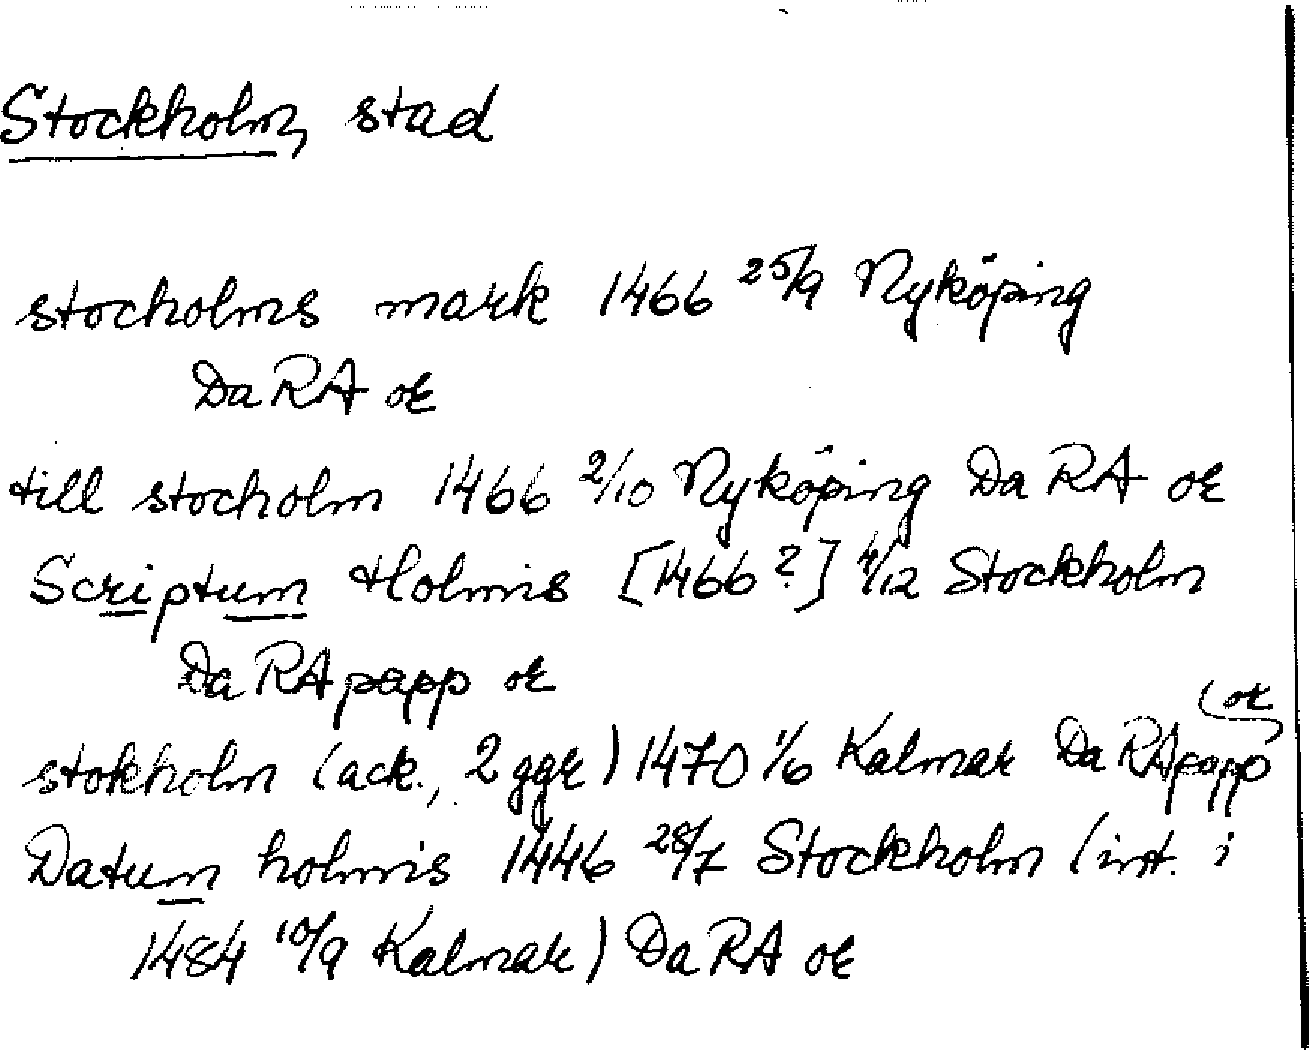 Stockholm, stad
stocholms mark 1466 25/9 Nyköping
Da RA or
till stocholm 1466 2/10 Nyköping Da RA or
Scriptum Holmis [1466?] 4/12 Stockholm
Da RApapp or
stokholm (ack., 2 ggr) 1470 1/6 Kalmar Da RApapp or
Datum holmis 1446 28/7 Stockholm (int. i
1484 10/9 Kalmar) Da RA or